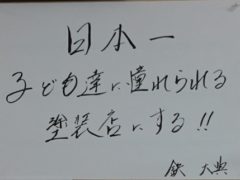 日本一
子ども達に憧れられる
塗装店にする!!
鉄 大典